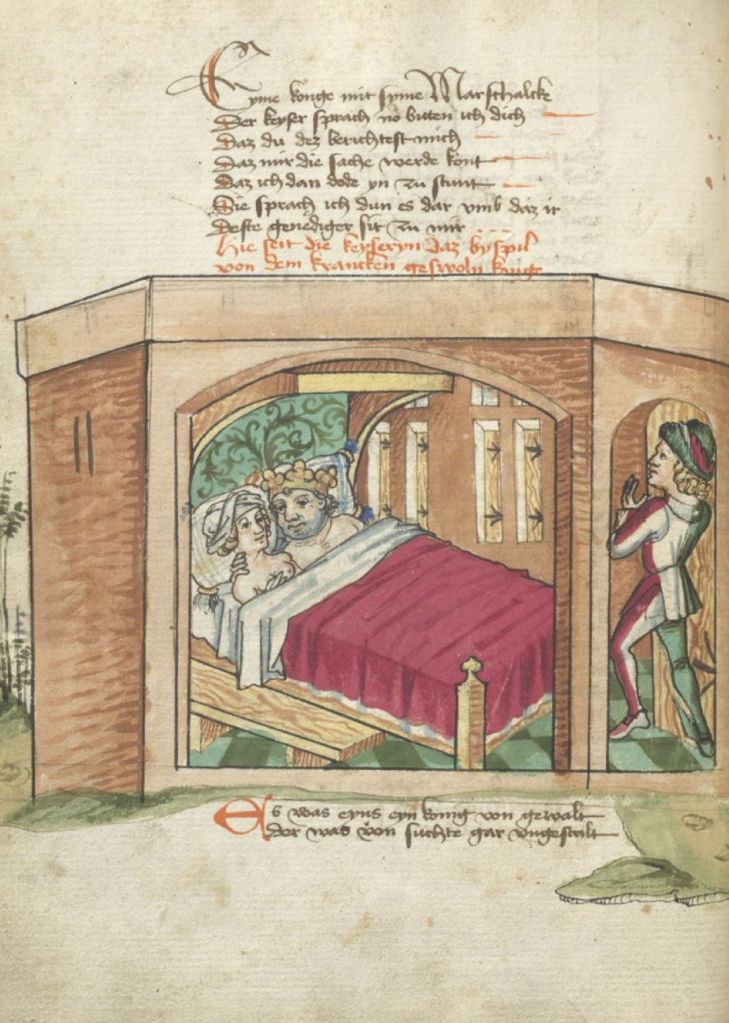 Eyme konge mit syme Marschalcke
Der keyser sprach no bitten ich dich
Daz du dez berichtest mich
Daz mir die sache werde kont
Daz ich dan dode yn zu stunt
Sie sprach ich dun es dar vmb daz ir
Deste genediger sit zu mir
Hie seit die keyseryn daz byspil
von dem krancken geswoln konge
Es was eyns eyn konig von gewalt
der was von suchte gar vngestalt